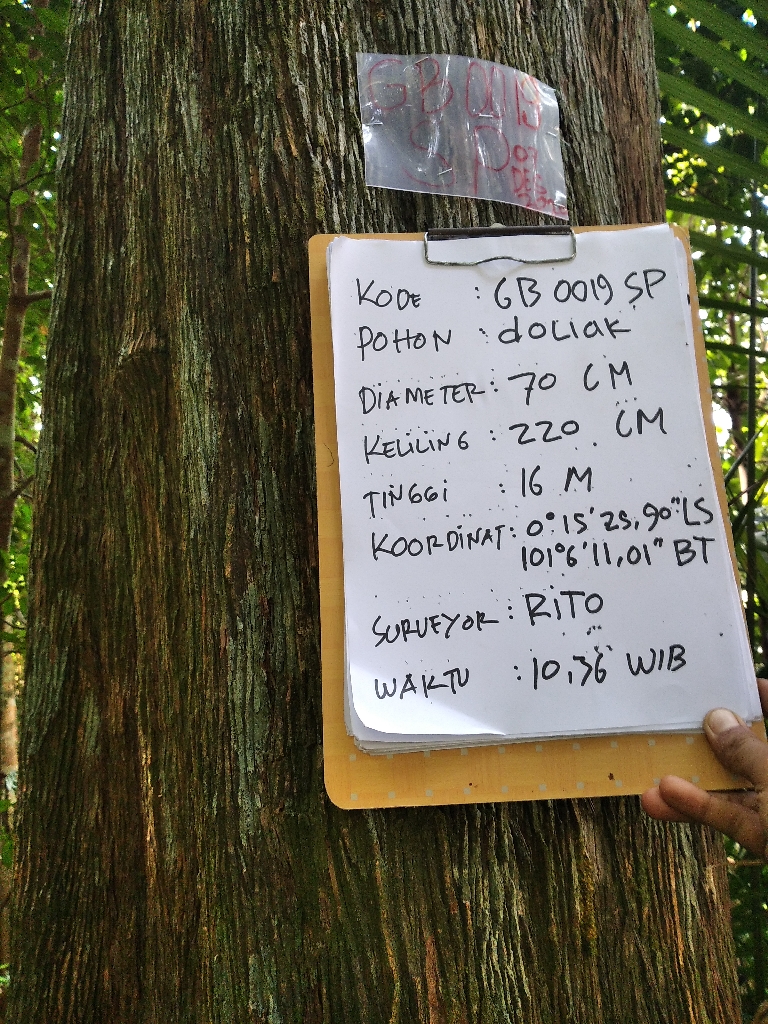 GB 0019
SP 07
KODE : GB 0019 SP
POHON : doLiaK
DIAMETER : 70 CM
KELILING : 220 CM
TINGGi : 16 M
KOORDINAT : 0°15'25,90" LS
101°6'11,01" BT
SURVEYOR : RiTO
WAKTU : 10,36 WIB